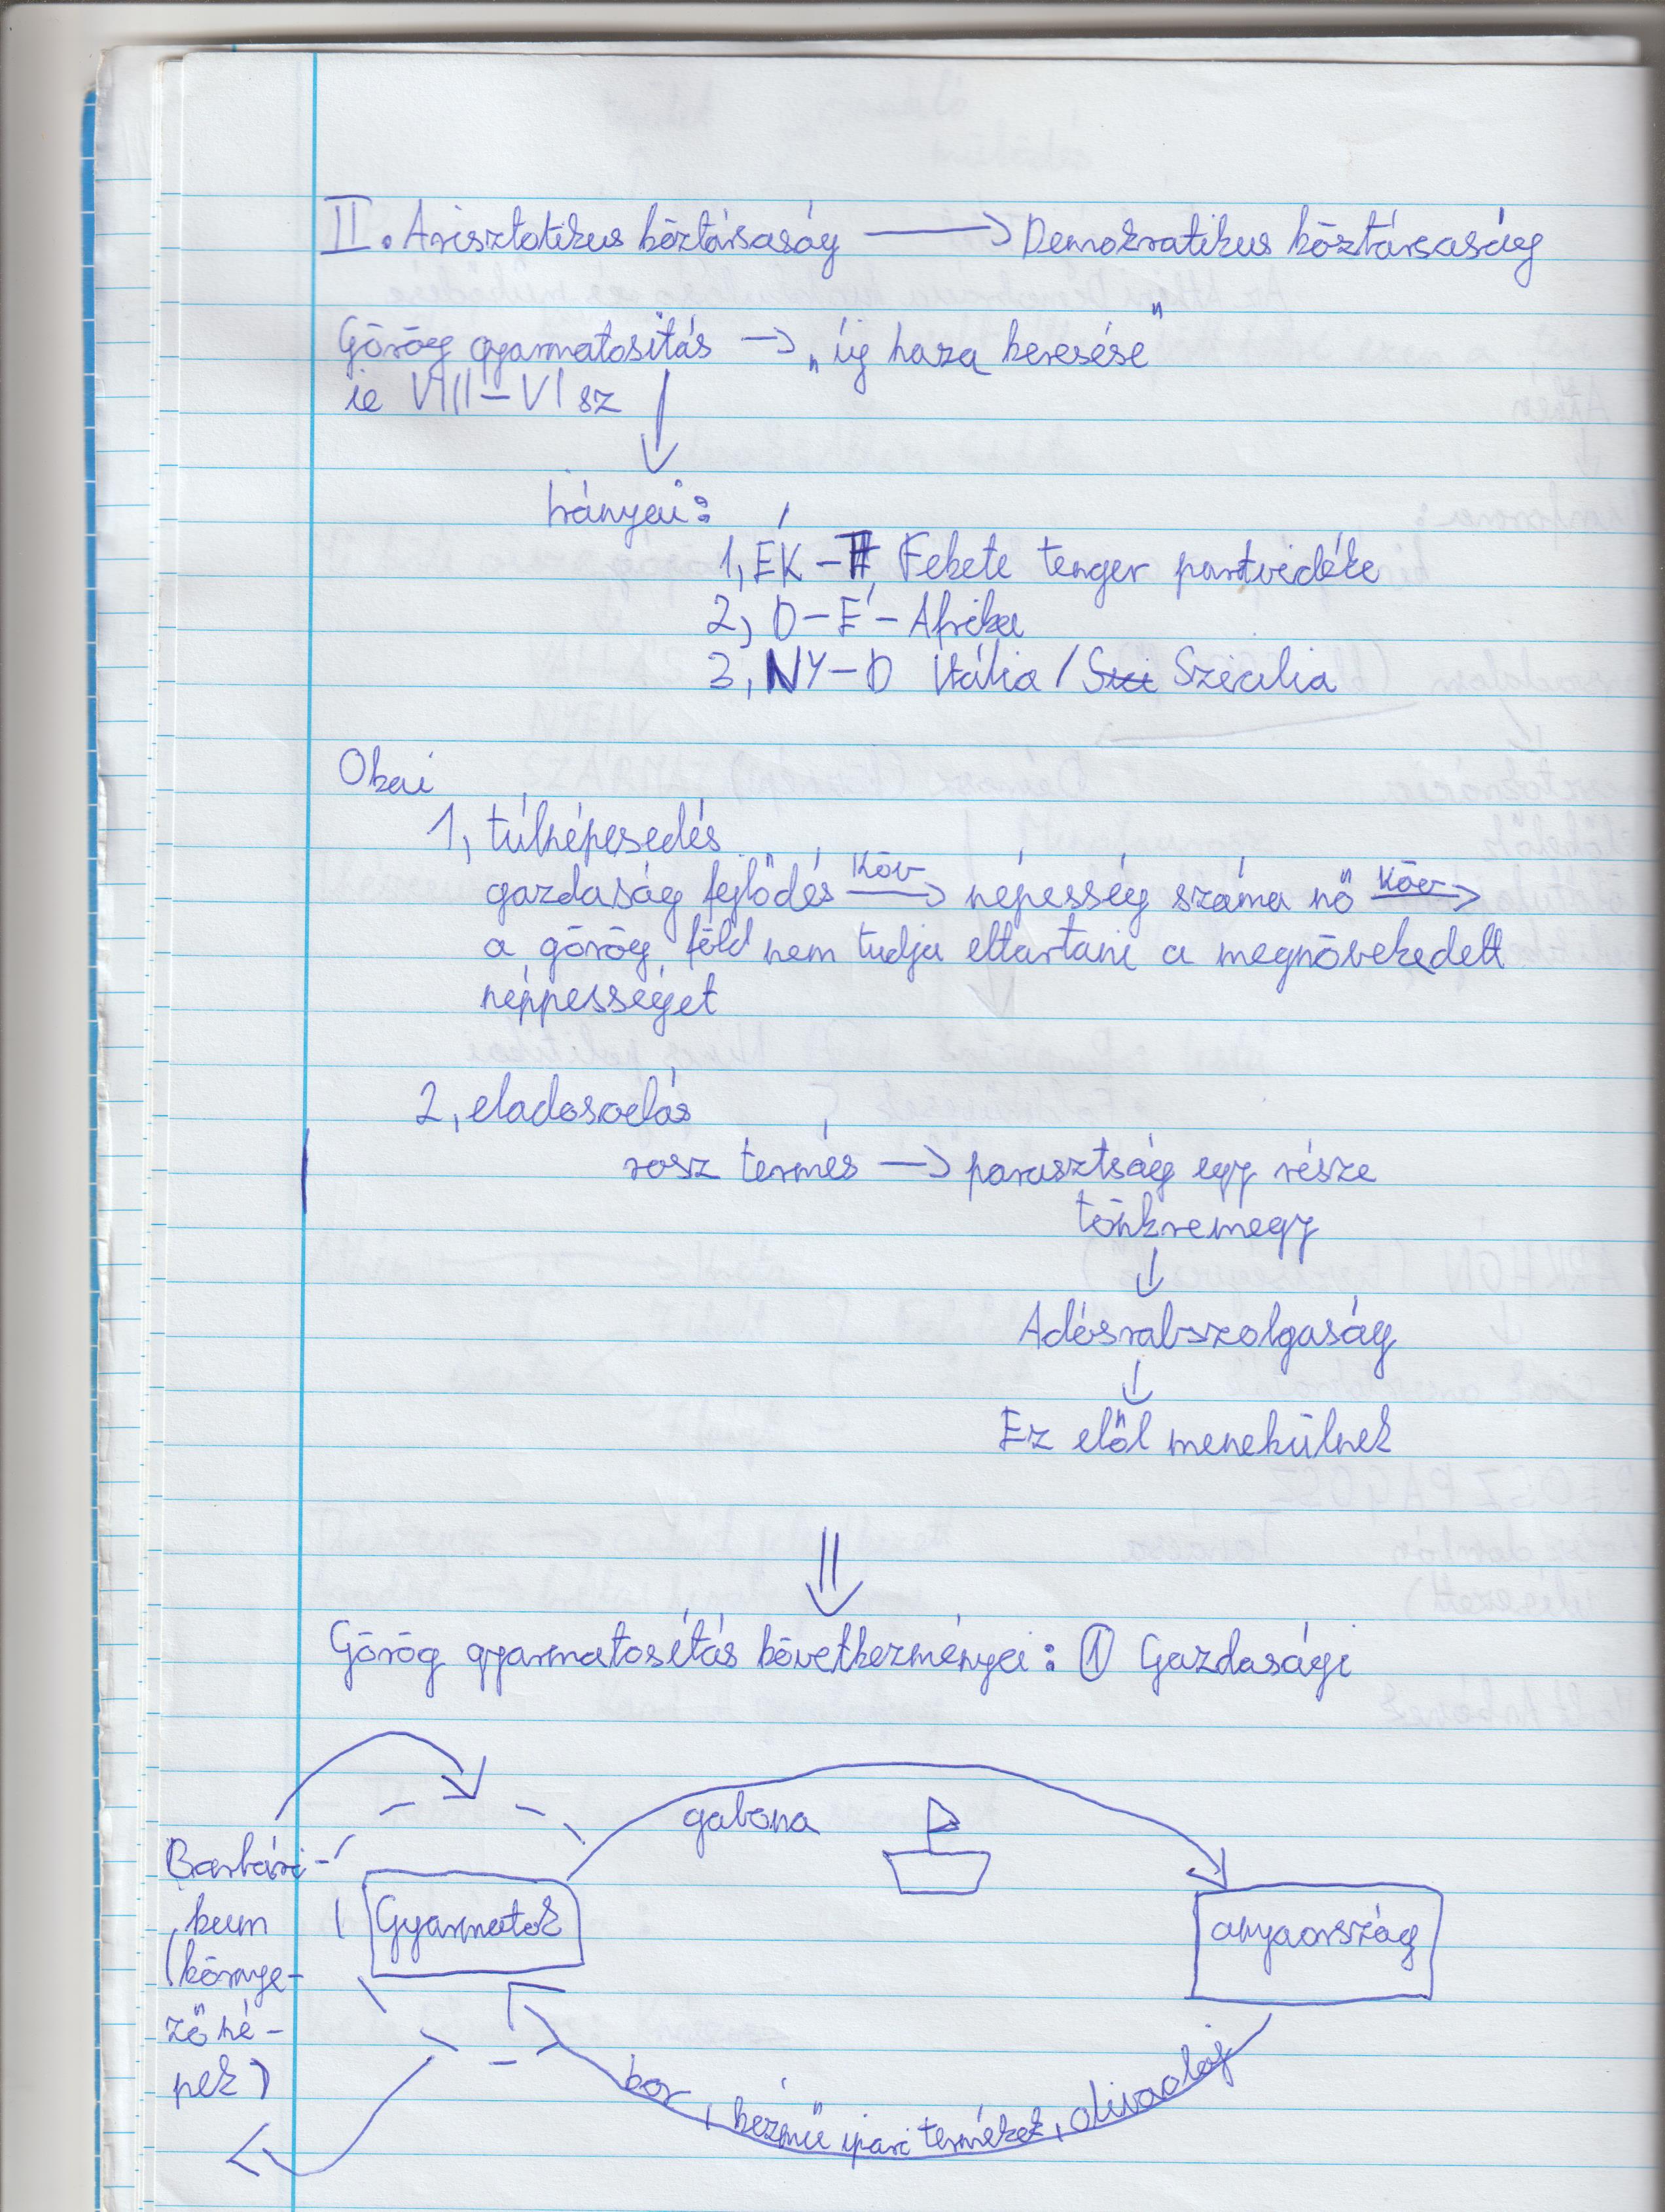 II. Arisztotikus köztársaság → Demokratikus köztársaság
Görög gyarmatosítás → „új haza keresése"
ie VIII – VI sz
Irányai:
1, ÉK – Fekete tenger partvidéke
2, D – É – Afrika
3, NY – D Itália / Szi Szicilia
Okai
1, túlnépesedés
gazdaság fejlődés köv→ népesség száma nő köv→
a görög föld nem tudja eltartani a megnövekedett
néppességet
2, eladosodás
rosz termés → parasztság egy része
tönkremegy
↓
Adósrabszolgaság
↓
Ez elől menekülnek
⇓
Görög gyarmatosítás következményei: ① Gazdasági
gabona
Barbári-
kum
(környe-
ző né-
pek)
Gyarmatok
anyaország
bor, kézmű ipari termékek, olivaolaj